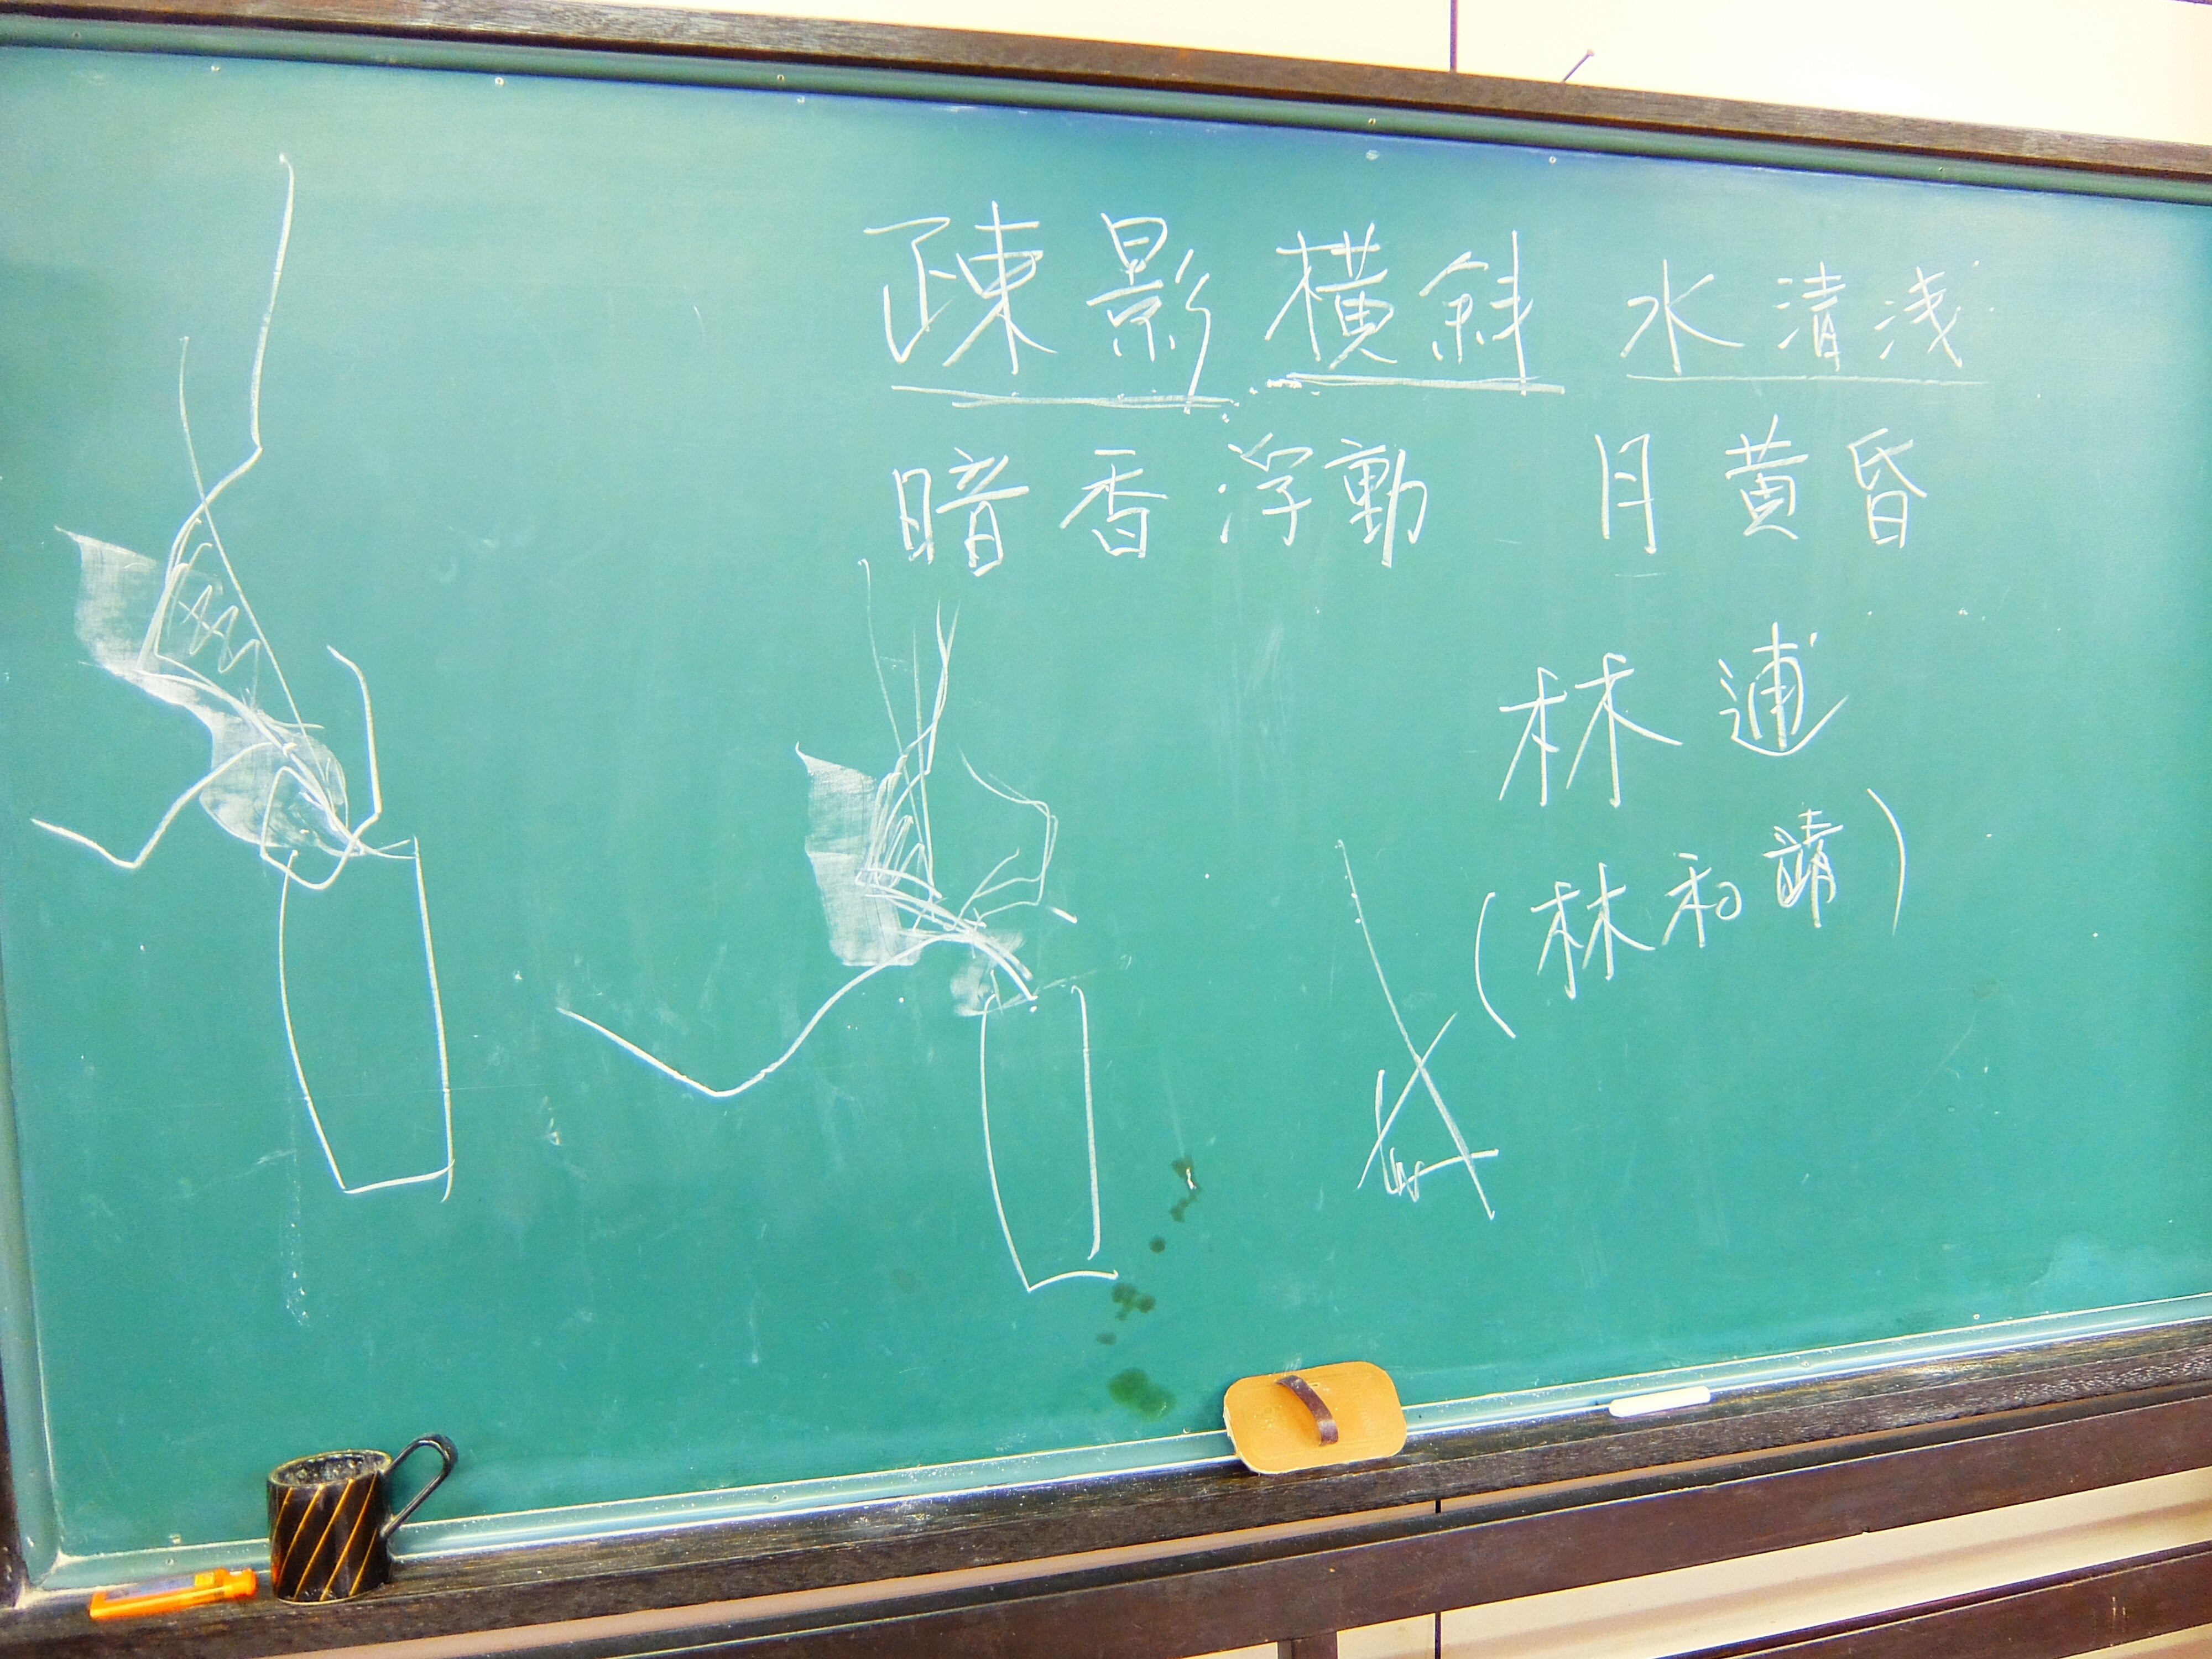 疎影横斜 水清浅
暗香浮動 月黄昏
林逋
(林和靖)